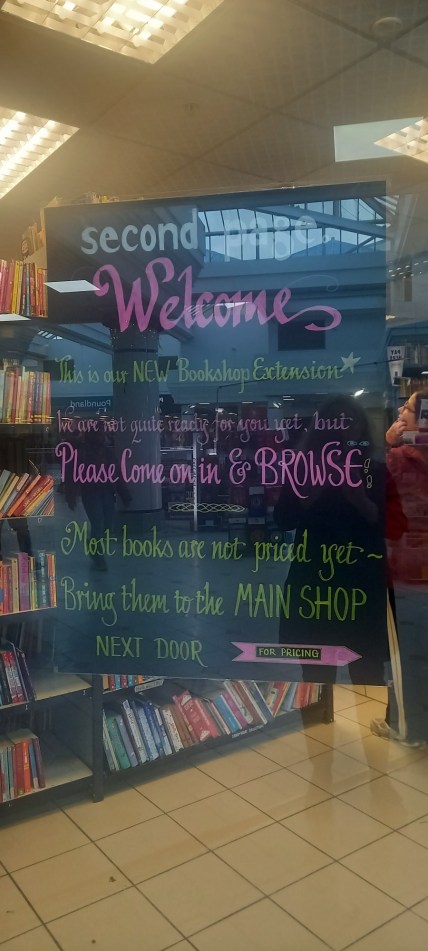 second page.
Welcome
This is our NEW Bookshop Extension
Poundland
We are not quite ready for you yet, but
Please Come on in & BROWSE!
Most books are not priced yet ~
Bring them to the MAIN SHOP
NEXT DOOR
FOR PRICING